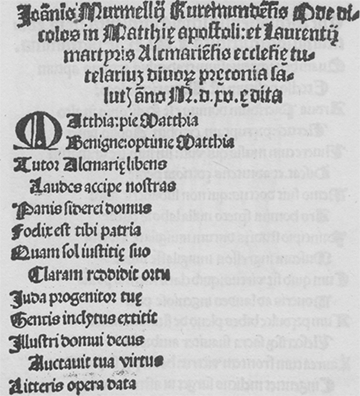 Joānis Murmellij Ruremundēsis Ode di-
colos in Matthie apostoli: et Laurentij
martyris Alcmariēsis ecclesie tu-
telariuz diuorz preconia sa-
lutz āno M.d.xv. edita
Matthia: pie Matthia
Benigne: optime Matthia
Tutor Alcmarie libens
Laudes accipe nostras
Panis siderei domus
Fodix est tibi patria
Quam sol iustitie suo
Claram reddidit ortu
Juda progenitor tue
Gentis inclytus extitit
Illustri domui decus
Auctauit tua virtus
Litteris opera data